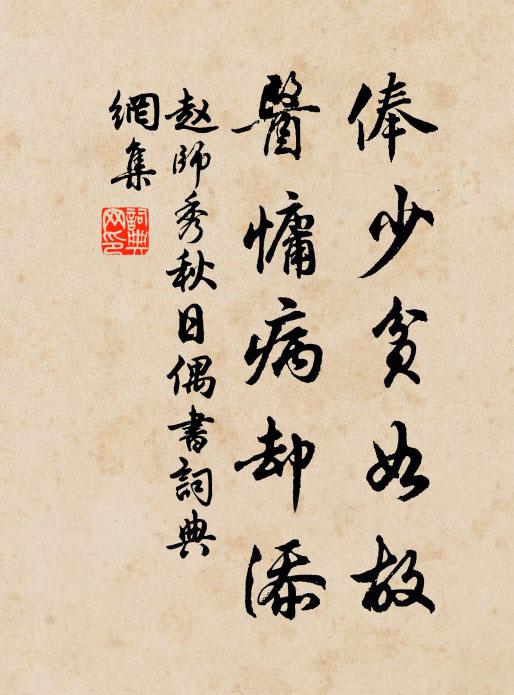 俸少貧如故
醫慵病却添
赵師秀秋日偶書詞典
網集
詞典
网印